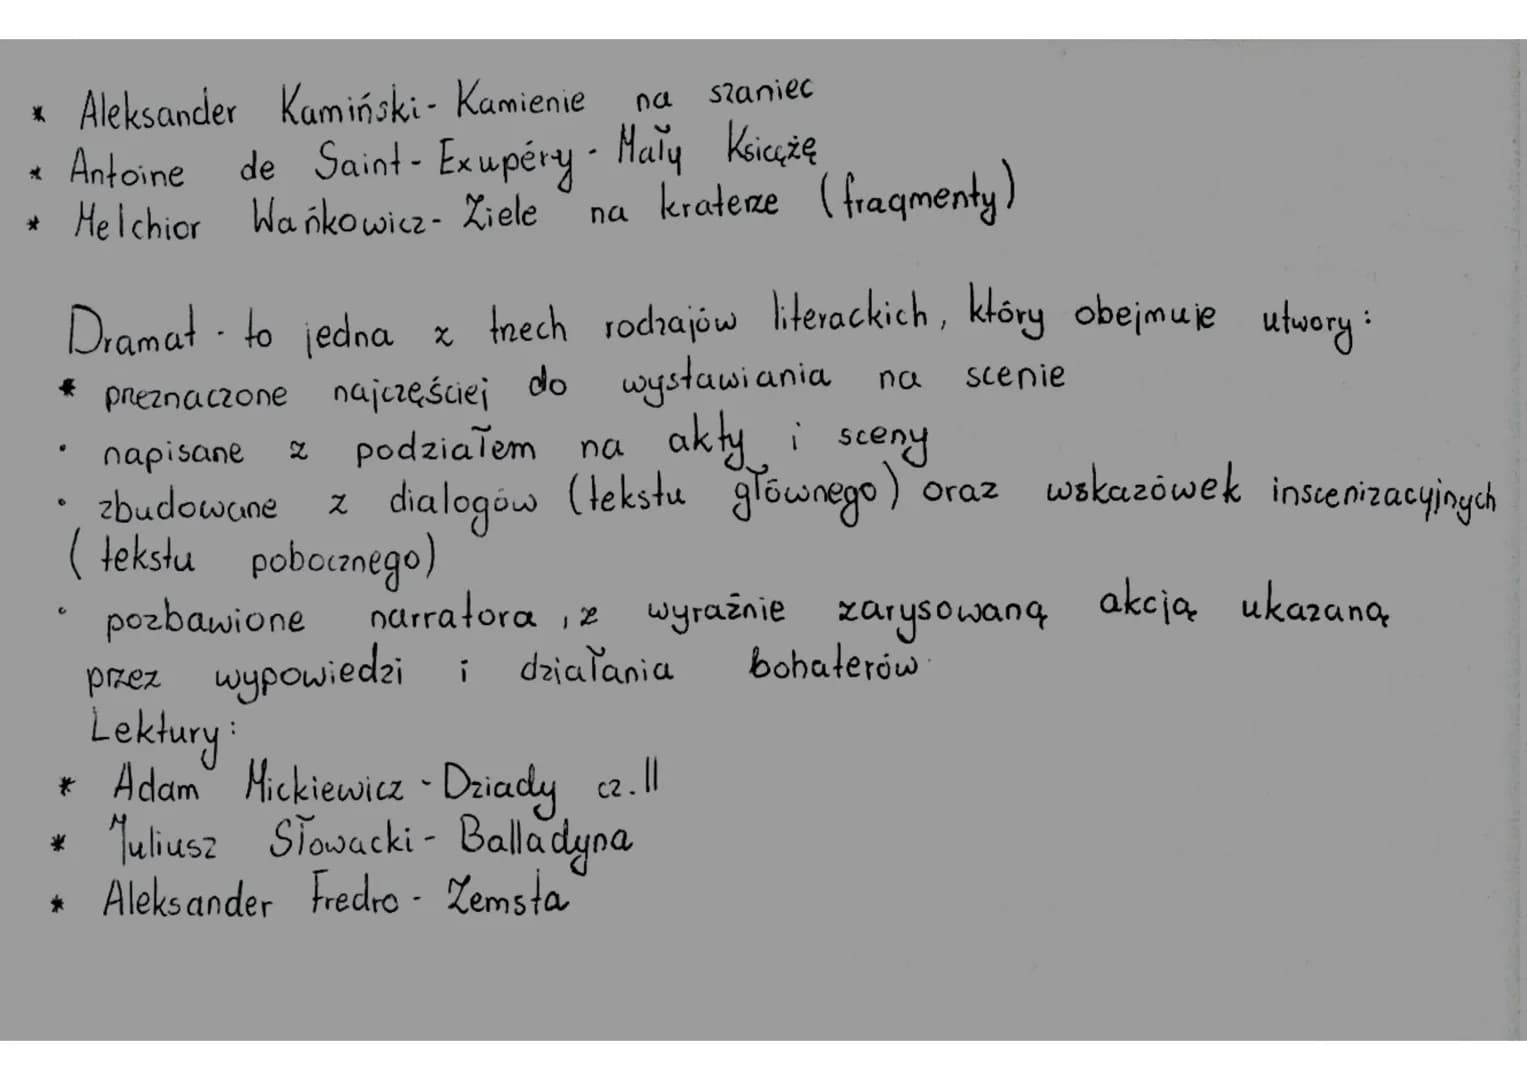 * Aleksander Kamiński - Kamienie na szaniec
* Antoine de Saint-Exupéry - Mały Książę
* Melchior Wańkowicz - Ziele na kraterze (fragmenty)
Dramat - to jedna z trzech rodzajów literackich, który obejmuje utwory:
* przeznaczone najczęściej do wystawiania na scenie
• napisane z podziałem na akty i sceny
• zbudowane z dialogów (tekstu głównego) oraz wskazówek inscenizacyjnych
(tekstu pobocznego)
• pozbawione narratora, z wyraźnie zarysowaną akcją ukazaną
przez wypowiedzi i działania bohaterów.
Lektury:
* Adam Mickiewicz - Dziady cz. II
* Juliusz Słowacki - Balladyna
* Aleksander Fredro - Zemsta